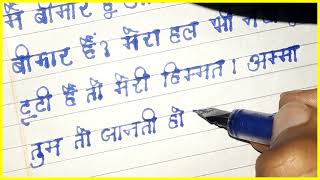 मैं बीमार हूँ
बीमार हैं? मेरा हल भी
टूटी हैं तो मेरी हिम्मत। अम्मा
तुम तो जानती हो